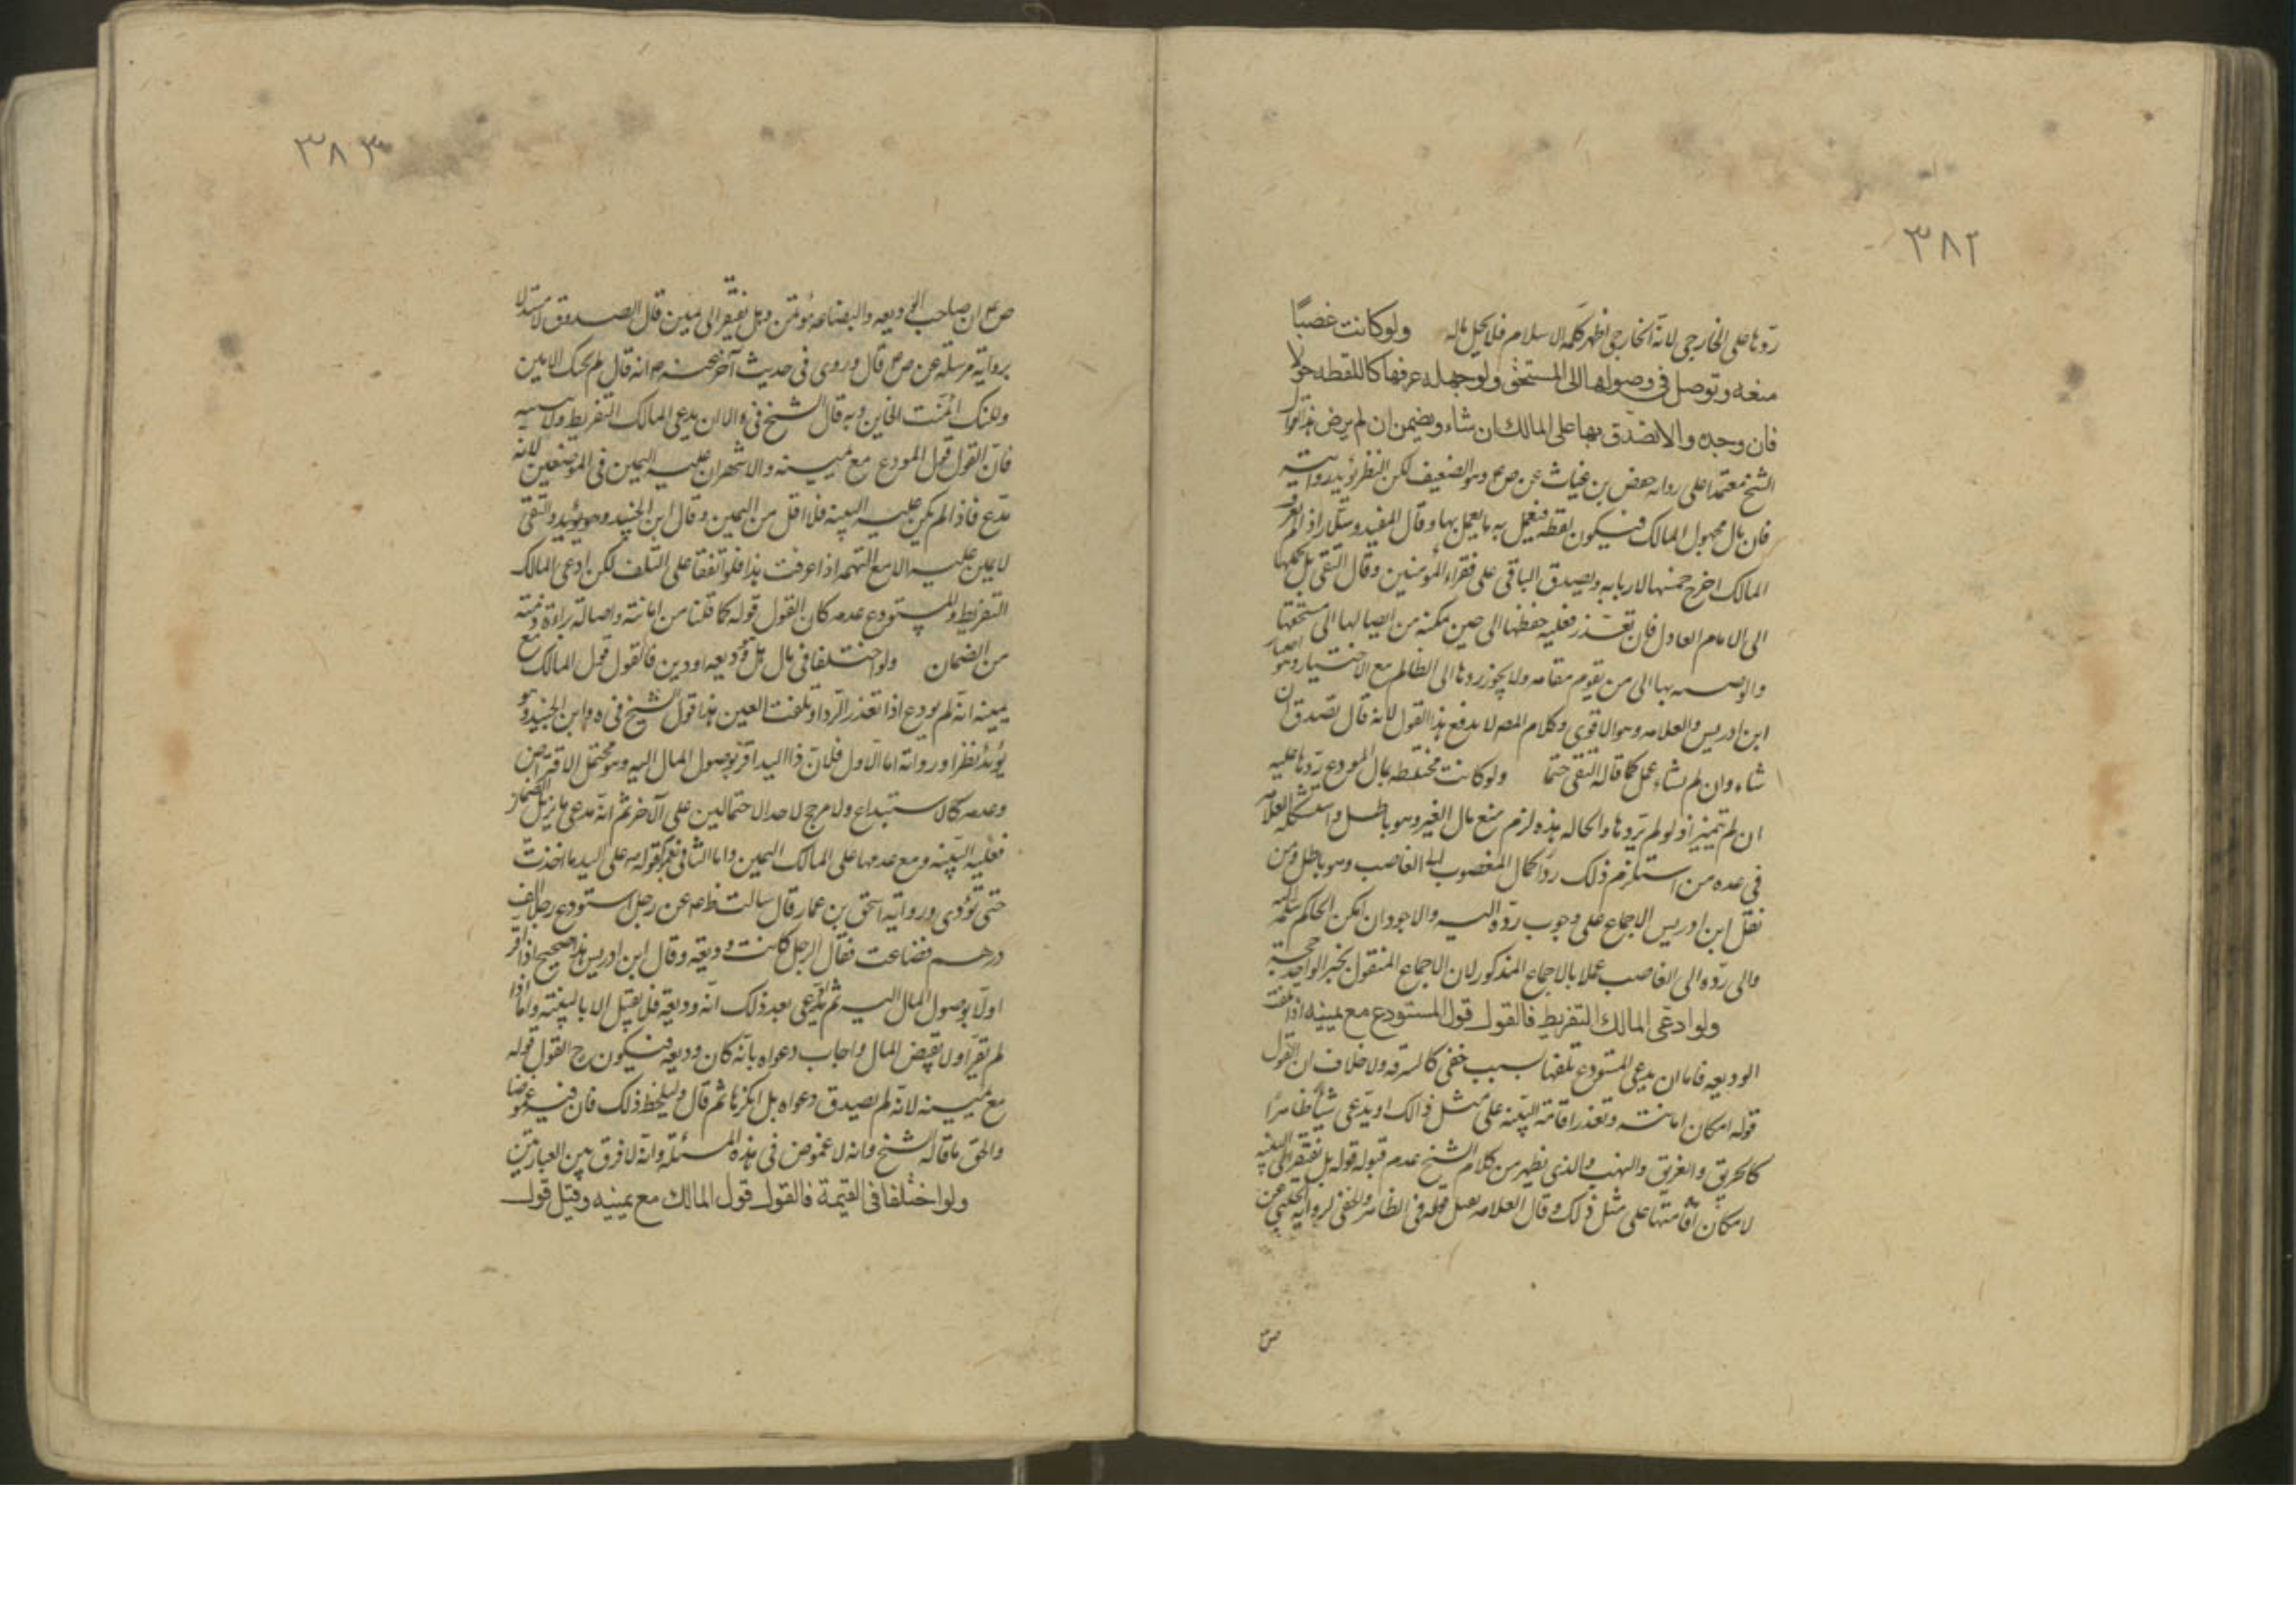 ٣٨٢
ردها على الخارجي لانه الخارجي اظهر كلمة الاسلام فلا يحل ماله ولو كانت غصبًا
منعه وتوصل في وصولها الى المستحق ولو جهله عرفها كاللقطه حولا
فان وجده والا تصدق بها على المالك ان شاء ويضمن ان لم يرض هذا قول
الشيخ معتمدا على رواية حفص بن غياث عن ص ع وهو الضعيف لكن النظر يؤيد روايته
فان مال مجهول المالك فيكون لقطه فيعمل به ما يعمل بها وقال المفيد وسلار اذا لم يعرف
المالك اخرج خمسها لاربابه ويصدق الباقى على فقراء المؤمنين وقال التقى بل يحملها
الى الامام العادل فان تعذر فعليه حفظها الى حين يمكنه من ايصالها الى مستحقها
والوصيه بها الى من يقوم مقامه ولا يجوز ردها الى الظالم مع الاختيار وهو اختيار
ابن ادريس والعلامه وهو الاقوى وكلام المصـ لا يدفع هذا القول لانه قال تصدق ان
شاء وان لم يشاء عمل كما قاله التقى حتما ولو كانت مختلطه بمال المودع ردها عليه
ان لم تتميز اذ لو لم يردها والحاله هذه لزم منع مال الغير وهو باطل واستشكله العلامه
فى عده من استلزم ذلك رد المال المغصوب الى الغاصب وهو باطل ومن
نقل ابن ادريس الاجماع على وجوب رده اليه والاجود ان امكن الحاكم سلمه اليه
والى رده الى الغاصب عملا بالاجماع المذكور لان الاجماع المنقول بخبر الواحد حجة
ولو ادعى المالك التفريط فالقول قول المستودع مع يمينه اذا تلفت
الوديعه فاما ان يدعى المستودع تلفها بسبب خفى كالسرقه ولا خلاف ان القول
قوله لمكان امانته وتعذر اقامة البينه على مثل ذالك او يدعى شيئا ظاهرًا
كالحريق والغريق والنهب والذى يظهر من كلام الشيخ عدم قبوله قوله بل يفتقر الى البينه
لامكان اقامتها على مثل ذلك وقال العلامه يقبل قوله فى الظاهر والخفى لرواية الحلبى عن
ص ع
٣٨٣
ص ع ان صاحب الوديعه والبضاعه مؤتمن وهل يفتقر الى يمين قال الصدوق لا مستدلا
برواية مرسلة عن ص ع قال وروى فى حديث آخر عنه ع انه قال لم يخنك الامين
ولكنك ائتمنت الخاين وبه قال الشيخ فى والا ان يدعى المالك التفريط ولا بينه
فان القول قول المودع مع يمينه والاشهر ان عليه اليمين فى الموضعين لانه
مدع فاذا لم يكن عليه البينه فلا اقل من اليمين وقال ابن الجنيد وهو يؤيد والتقى
لا يمين عليه الا مع التهمه اذا عرفت هذا فلو اتفقا على التلف لكن ادعى المالك
التفريط والمستودع عدمه كان القول قوله كما قلنا من امانته واصالة براءة ذمته
من الضمان ولو اختلفا فى مال هل وديعه او دين فالقول قول المالك مع
يمينه انه لم يودع اذا تعذر الرد او تلفت العين هذا قول الشيخ فى يه وابن الجنيد وهو
يؤيد نظرا ورواية اما الاول فلان ذا اليد اقر بوصول المال اليه وهو محتمل الاقتراض
وعدمه كالاستيداع ولا مرجح لاحد الاحتمالين على الآخر ثم انه مدعى ما يزيل الضمان
فعليه البينه ومع عدمها على المالك اليمين واما الثانى فعموم قوله ع على اليد ما اخذت
حتى تؤدى ورواية اسحق بن عمار قال سالت ظ ع عن رجل استودع رجلا الف
درهم فضاعت فقال الرجل كانت وديعة وقال ابن ادريس هذا صحيح اذا اقر
اولا بوصول المال اليه ثم ادعى بعد ذلك انه وديعة فلا يقبل الا بالبينة واما اذا
لم يقر اولا بقبض المال واجاب دعواه بانه كان وديعه فيكون ح القول قوله
مع يمينه لانه لم يصدق دعواه بل انكرها ثم قال وليلحظ ذلك فان فيه غموضا
والحق ما قاله الشيخ وانه لا غموض فى هذه المسئلة وانه لا فرق بين العبارتين
ولو اختلفا فى القيمة فالقول قول المالك مع يمينه وقيل قول